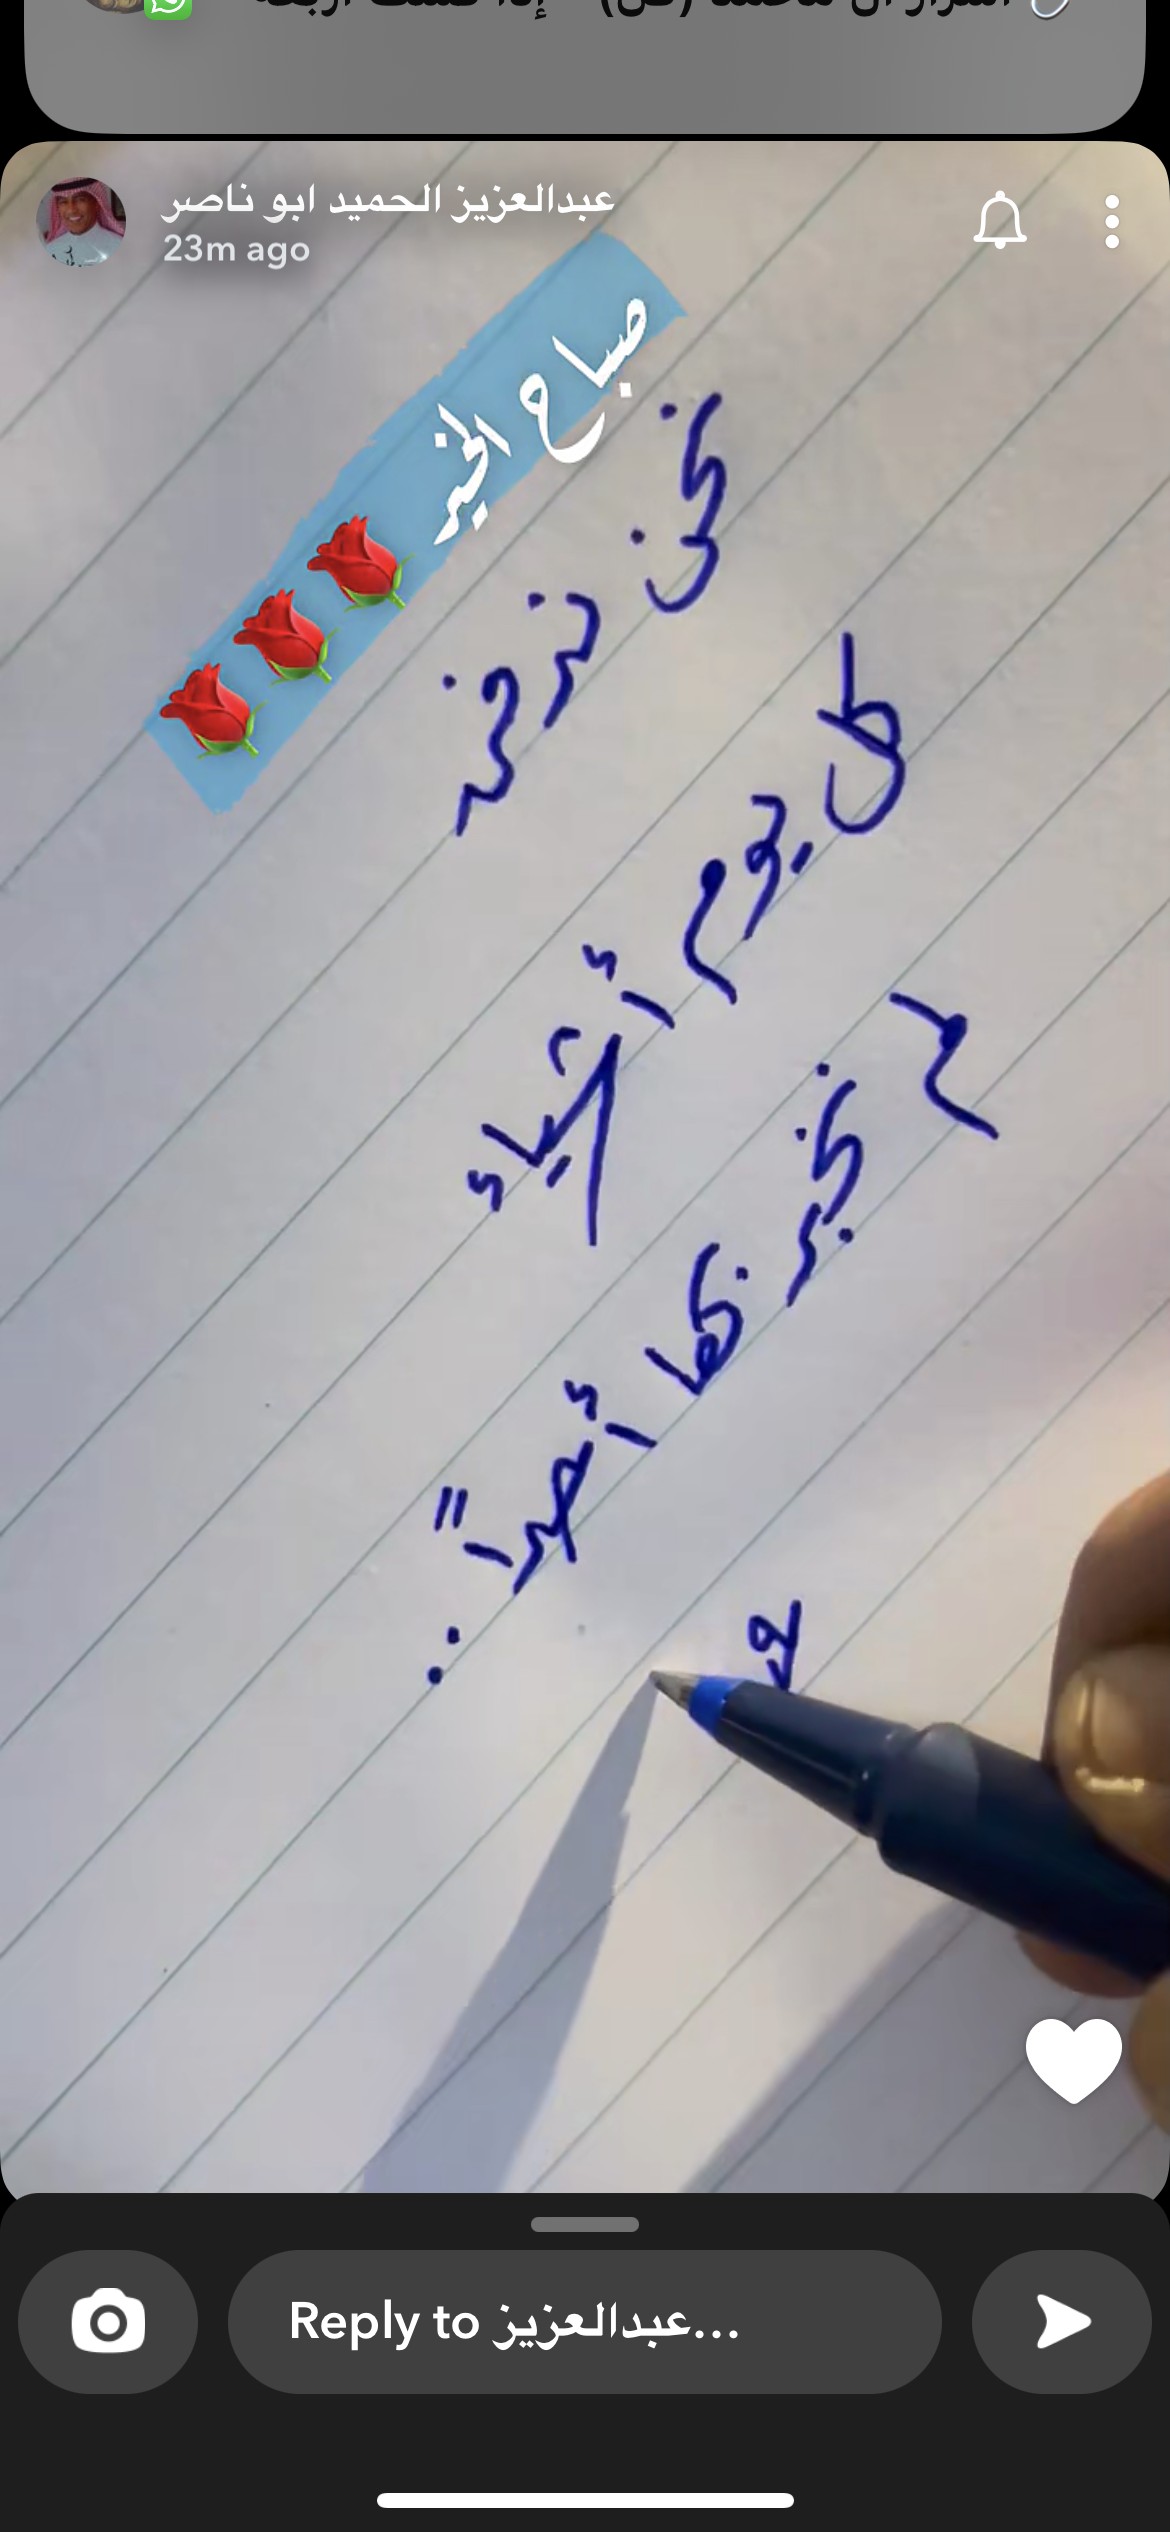 عبدالعزيز الحميد ابو ناصر
23m ago
صباح الخير 🌹🌹🌹
نحن
كل يوم أشياء
لم نخبر عنها أحداً ..
Reply to عبدالعزيز...